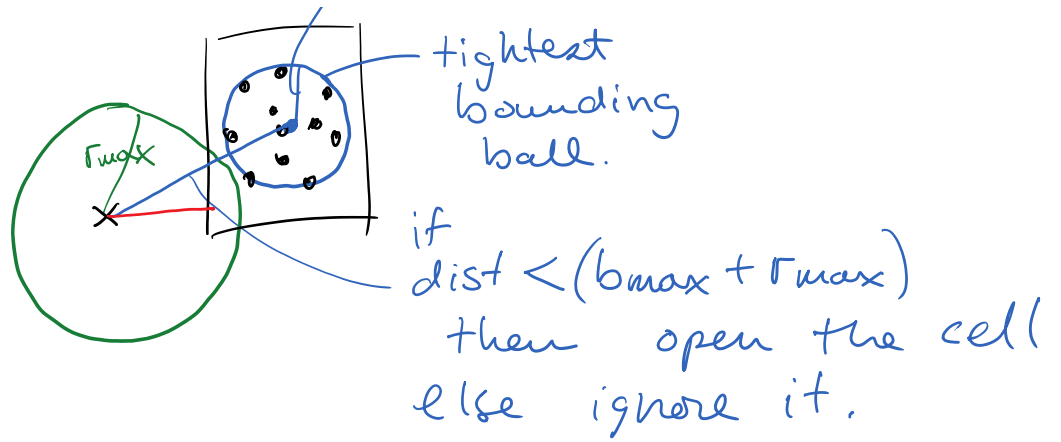 tightest
bounding
ball.
rmax
if
dist < (bmax + rmax)
then open the cell
else ignore it.